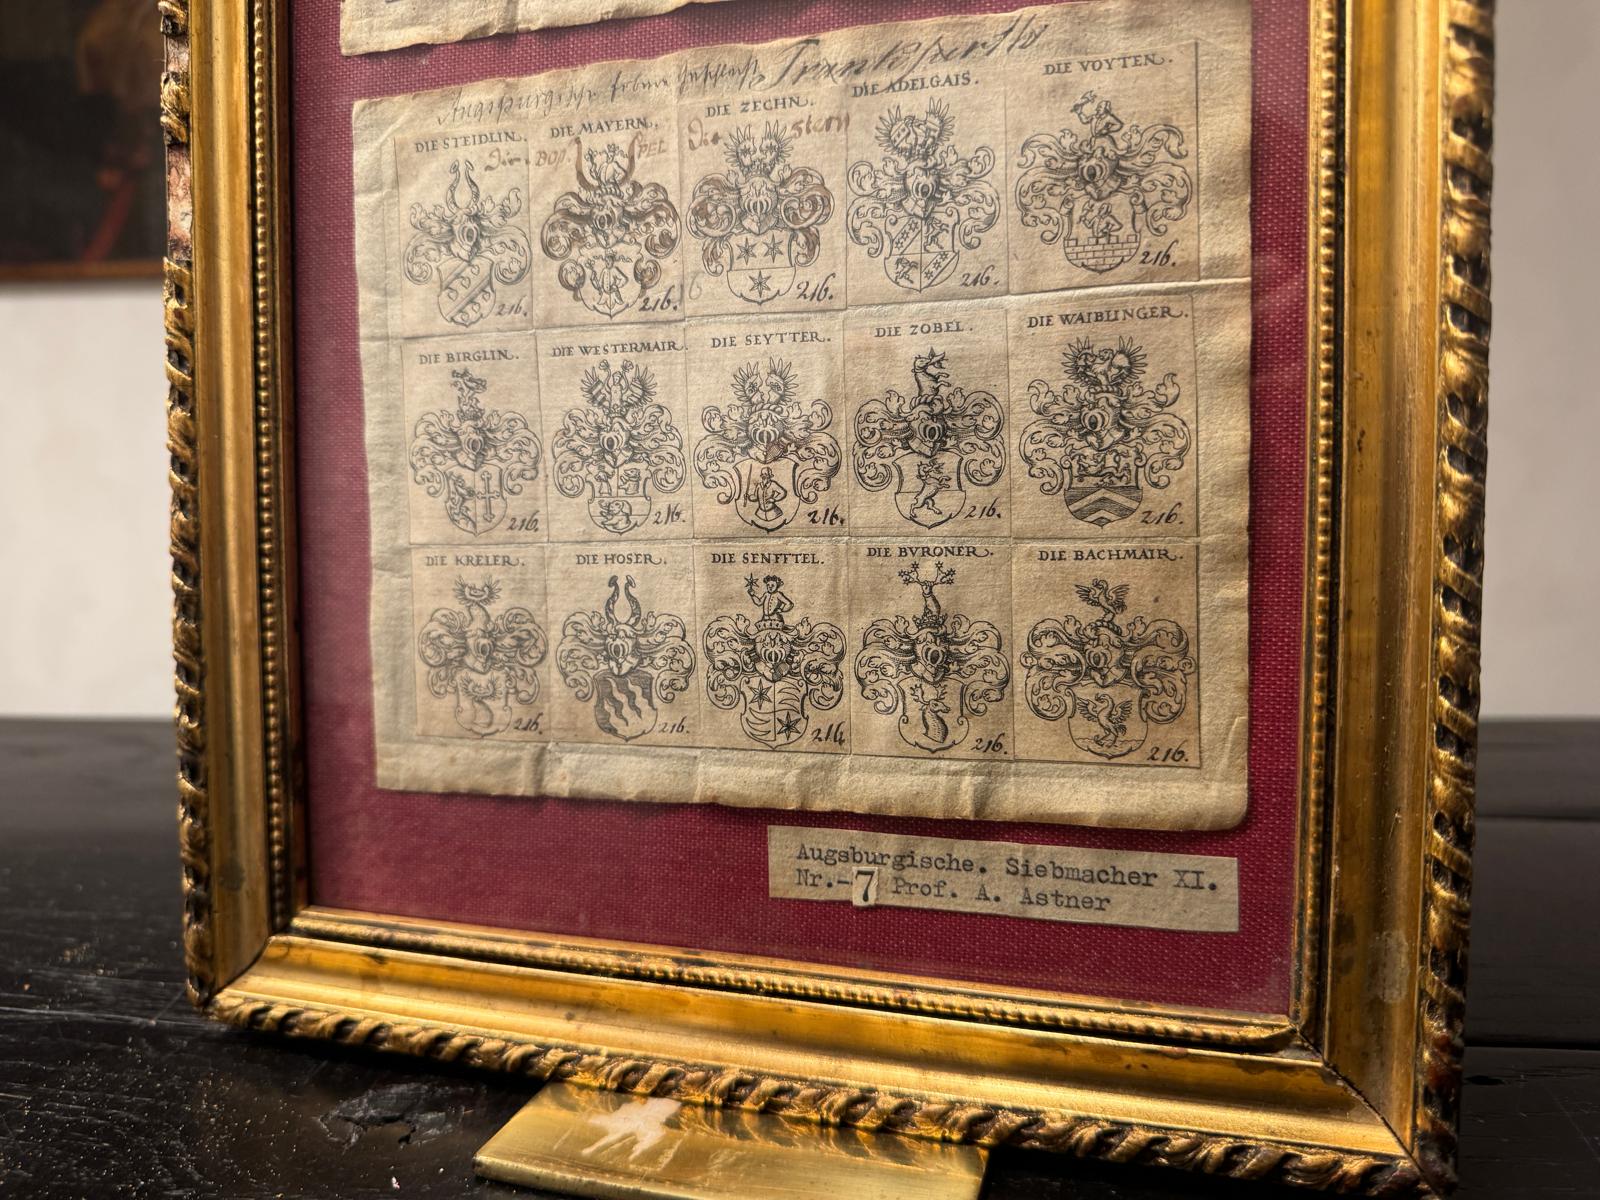 Augspurgische
DIE STEIDLIN. DIE MAYERN. DIE ZECHN. DIE ADELGAIS. DIE VOYTEN.
Die stern
216. 216. 216. 216. 216.
DIE BIRGLIN. DIE WESTERMAIR. DIE SEYTTER. DIE ZOBEL. DIE WAIBLINGER.
216. 216. 216. 216. 216.
DIE KRELER. DIE HOSER. DIE SENFFTEL. DIE BVRONER. DIE BACHMAIR.
216. 216. 216. 216. 216.
Augsburgische. Siebmacher XI.
Nr.-7 Prof. A. Astner